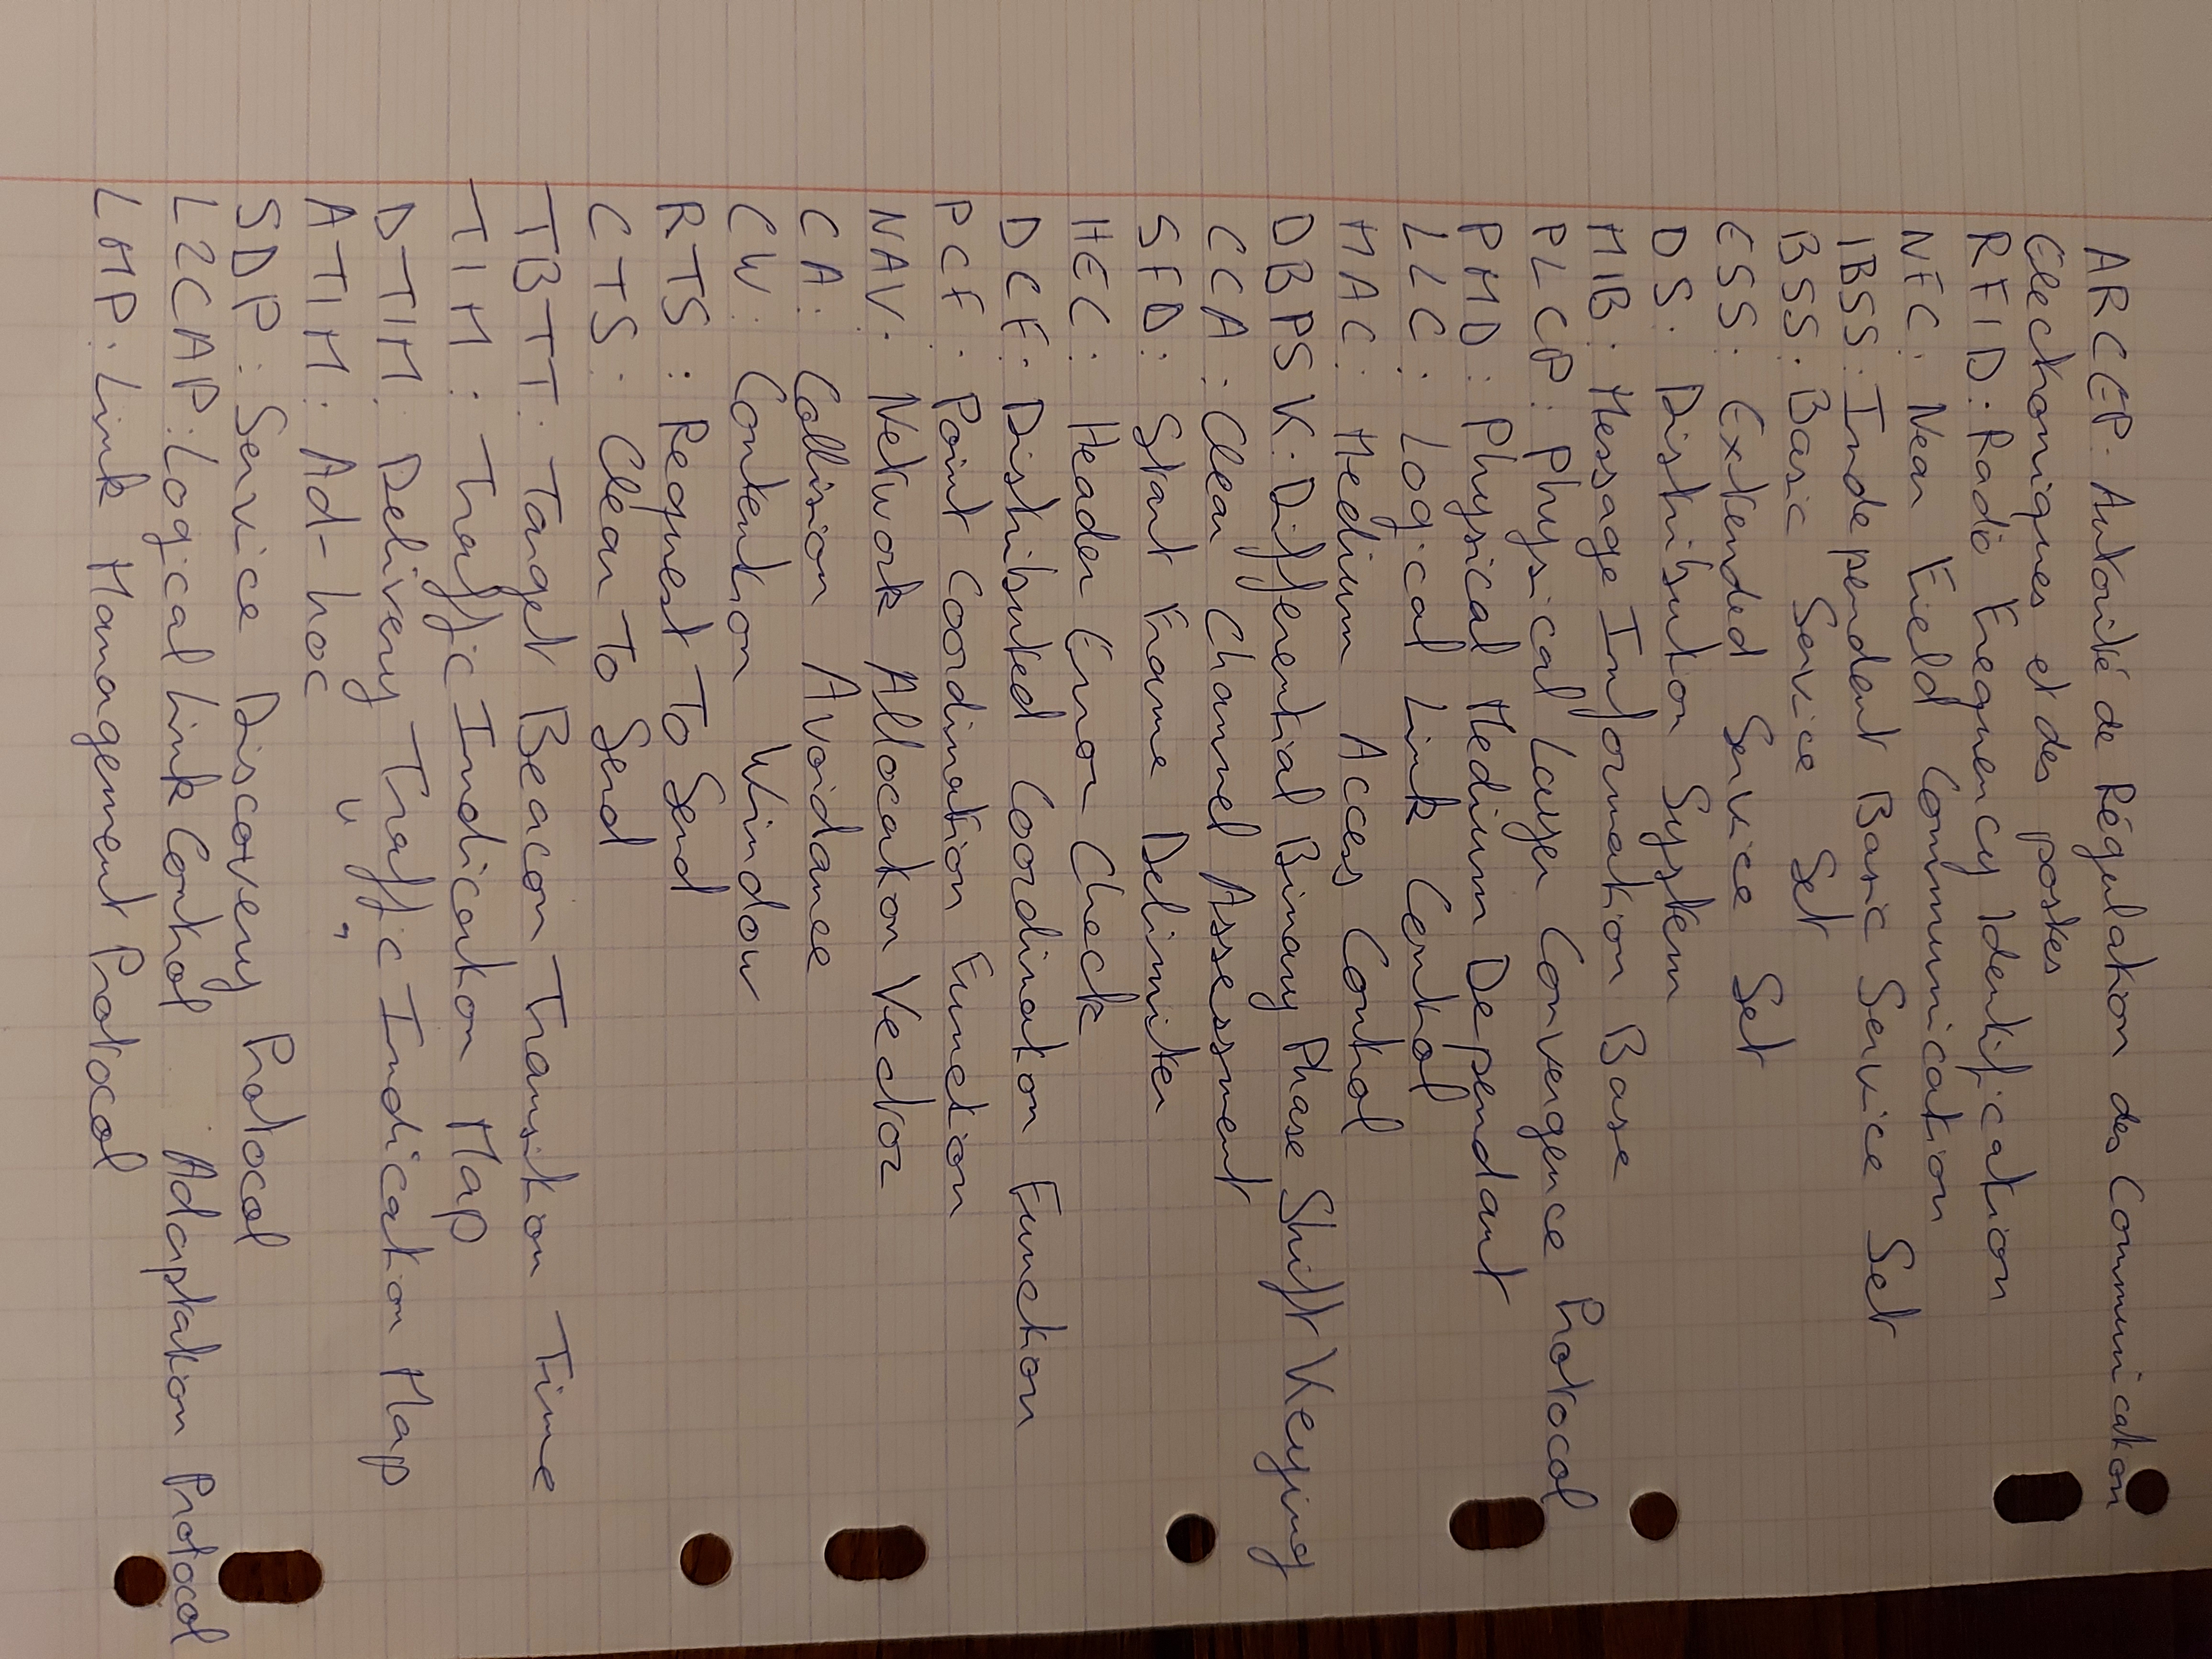 ARCEP : Autorité de Régulation des Communication
Electroniques et des postes
RFID : Radio Frequency Identification
NFC : Near Field Communication
IBSS : Independent Basic Service Set
BSS : Basic Service Set
ESS : Extended Service Set
DS : Distribution System
MIB : Message Information Base
PLCP : Physical Layer Convergence Protocol
PMD : Physical Medium Dependant
LLC : Logical Link Control
MAC : Medium Access Control
DBPSK : Differential Binary Phase Shift Keying
CCA : Clear Channel Assessment
SFD : Start Frame Delimiter
HEC : Header Error Check
DCF : Distributed Coordination Function
PCF : Point Coordination Function
NAV : Network Allocation Vector
CA : Collision Avoidance
CW : Contention Window
RTS : Request To Send
CTS : Clear To Send
TBTT : Target Beacon Transition Time
TIM : Traffic Indication Map
DTIM : Delivery Traffic Indication Map
ATIM : Ad-hoc " "
SDP : Service Discovery Protocol
L2CAP : Logical Link Control Adaptation Protocol
LMP : Link Management Protocol